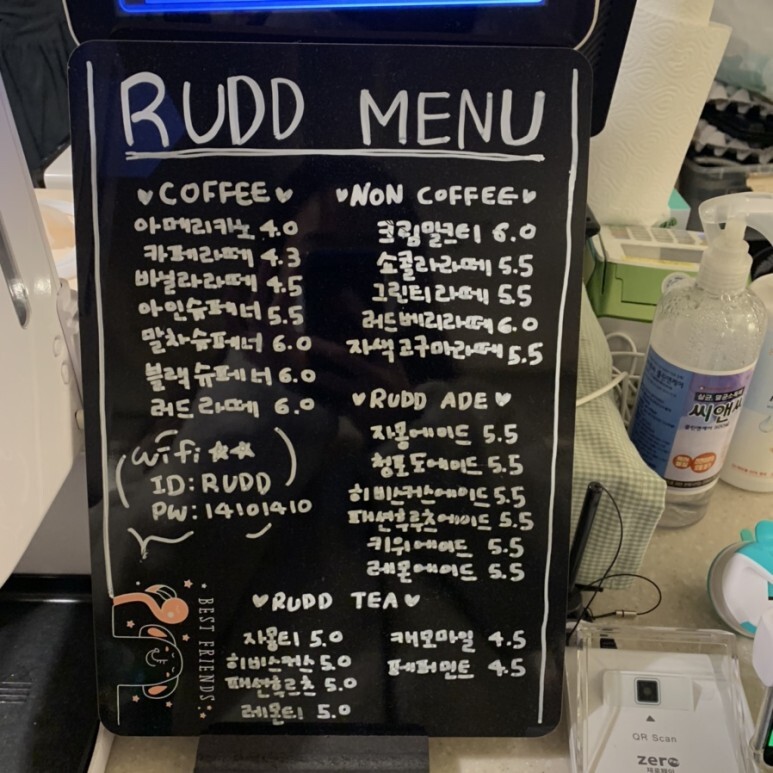 RUDD MENU
♥COFFEE♥
아메리카노 4.0
카페라떼 4.3
바닐라라떼 4.5
아인슈페너 5.5
말차슈페너 6.0
블랙슈페너 6.0
러드라떼 6.0
wifi
ID: RUDD
PW: 14101410
♥NON COFFEE♥
크림밀크티 6.0
쇼콜라라떼 5.5
그린티라떼 5.5
러드베리라떼 6.0
자색고구마라떼 5.5
♥RUDD ADE♥
자몽에이드 5.5
청포도에이드 5.5
히비스커스에이드 5.5
패션후르츠에이드 5.5
키위에이드 5.5
레몬에이드 5.5
♥RUDD TEA♥
자몽티 5.0
히비스커스 5.0
패션후르츠 5.0
레몬티 5.0
캐모마일 4.5
페퍼민트 4.5
BEST FRIENDS
씨앤
QR Scan
zero